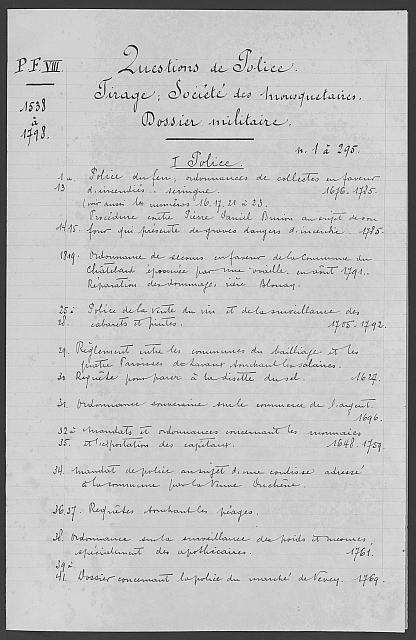 P. F. VIII.
1538
à
1798.
Questions de Police.
Tirage; Société des Mousquetaires.
Dossier militaire.
n. 1 à 295.
I Police.
1 à Police du feu, ordonnances de collectes en faveur
13 d'incendiés. seringue. 1676-1785.
(voir aussi les numéros 16. 17. 21 à 23.
Procédure contre Pierre Daniel au sujet de son
14.15. four qui présente de graves dangers d'incendie. 1785.
18.19. Ordonnance de secours en faveur de la Commune du
Châtelard éprouvée par une en août 1791.
Réparation des dommages rière Blonay.
25 à Police de la vente du vin et de la surveillance des
28. cabarets et pintes. 1755-1792.
29. Règlement entre les communes du bailliage et les
quatre Paroisses de Lavaux touchant les salaires.
30 Requête pour parer à la disette du sel. 1627.
31. Ordonnance souveraine sur le commerce de l'argent.
1696.
32 à Mandats et ordonnances concernant les monnaies
35. et l'exportation des capitaux. 1648-1759.
34. Mandat de police au sujet d'une coulisse adressé
à la commune par la Veuve
36.37. Requêtes touchant les péages.
38. Ordonnance sur la surveillance des poids et mesures,
spécialement des apothicaires. 1761.
39 à
41. Dossier concernant la police du marché de Vevey. 1769.